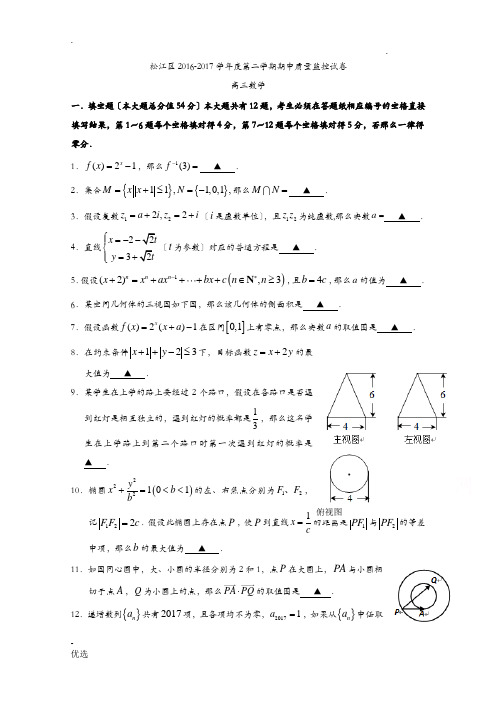 .
.
松江区2016-2017学年度第二学期期中质量监控试卷
高三数学
一．填空题〔本大题总分值54分〕本大题共有12题，考生必须在答题纸相应编号的空格直接
填写结果，第1~6题每个空格填对得4分，第7~12题每个空格填对得5分，否那么一律得
零分．
1．f(x)=2^x−1，那么f^{-1}(3)= ▲ ．
2．集合M={x| |x+1|≤1}, N={−1,0,1}，那么M∩N= ▲ ．
3．假设复数z₁=a+2i, z₂=2+i〔i是虚数单位〕，且z₁z₂为纯虚数，那么实数a= ▲ ．
4．直线{x=−2−√2t, y=3+√2t〔t为参数〕对应的普通方程是 ▲ ．
5．假设(x+2)^n=x^n+ax^{n-1}+⋯+bx+c(n∈N*, n≥3)，且b=4c，那么a的值为 ▲ ．
6．某空间几何体的三视图如下图，那么该几何体的侧面积是 ▲ ．
7．假设函数f(x)=2^x(x+a)−1在区间[0,1]上有零点，那么实数a的取值围是 ▲ ．
8．在约束条件|x+1|+|y−2|≤3下，目标函数z=x+2y的最
大值为 ▲ ．
9．某学生在上学的路上要经过2个路口，假设在各路口是否遇
到红灯是相互独立的，遇到红灯的概率都是1/3，那么这名学
生在上学路上到第二个路口时第一次遇到红灯的概率是
▲ ．
6
4
主视图
6
4
左视图
4
俯视图
10．椭圆x²+y²/b²=1(0<b<1)的左、右焦点分别为F₁、F₂，
记|F₁F₂|=2c．假设此椭圆上存在点P，使P到直线x=1/c的距离是|PF₁|与|PF₂|的等差
中项，那么b的最大值为 ▲ ．
11．如图同心圆中，大、小圆的半径分别为2和1，点P在大圆上，PA与小圆相
切于点A，Q为小圆上的点，那么PA·PQ的取值围是 ▲ ．
Q
P
A
12．递增数列{aₙ}共有2017项，且各项均不为零，a₂₀₁₇=1，如果从{aₙ}中任取
-
优选